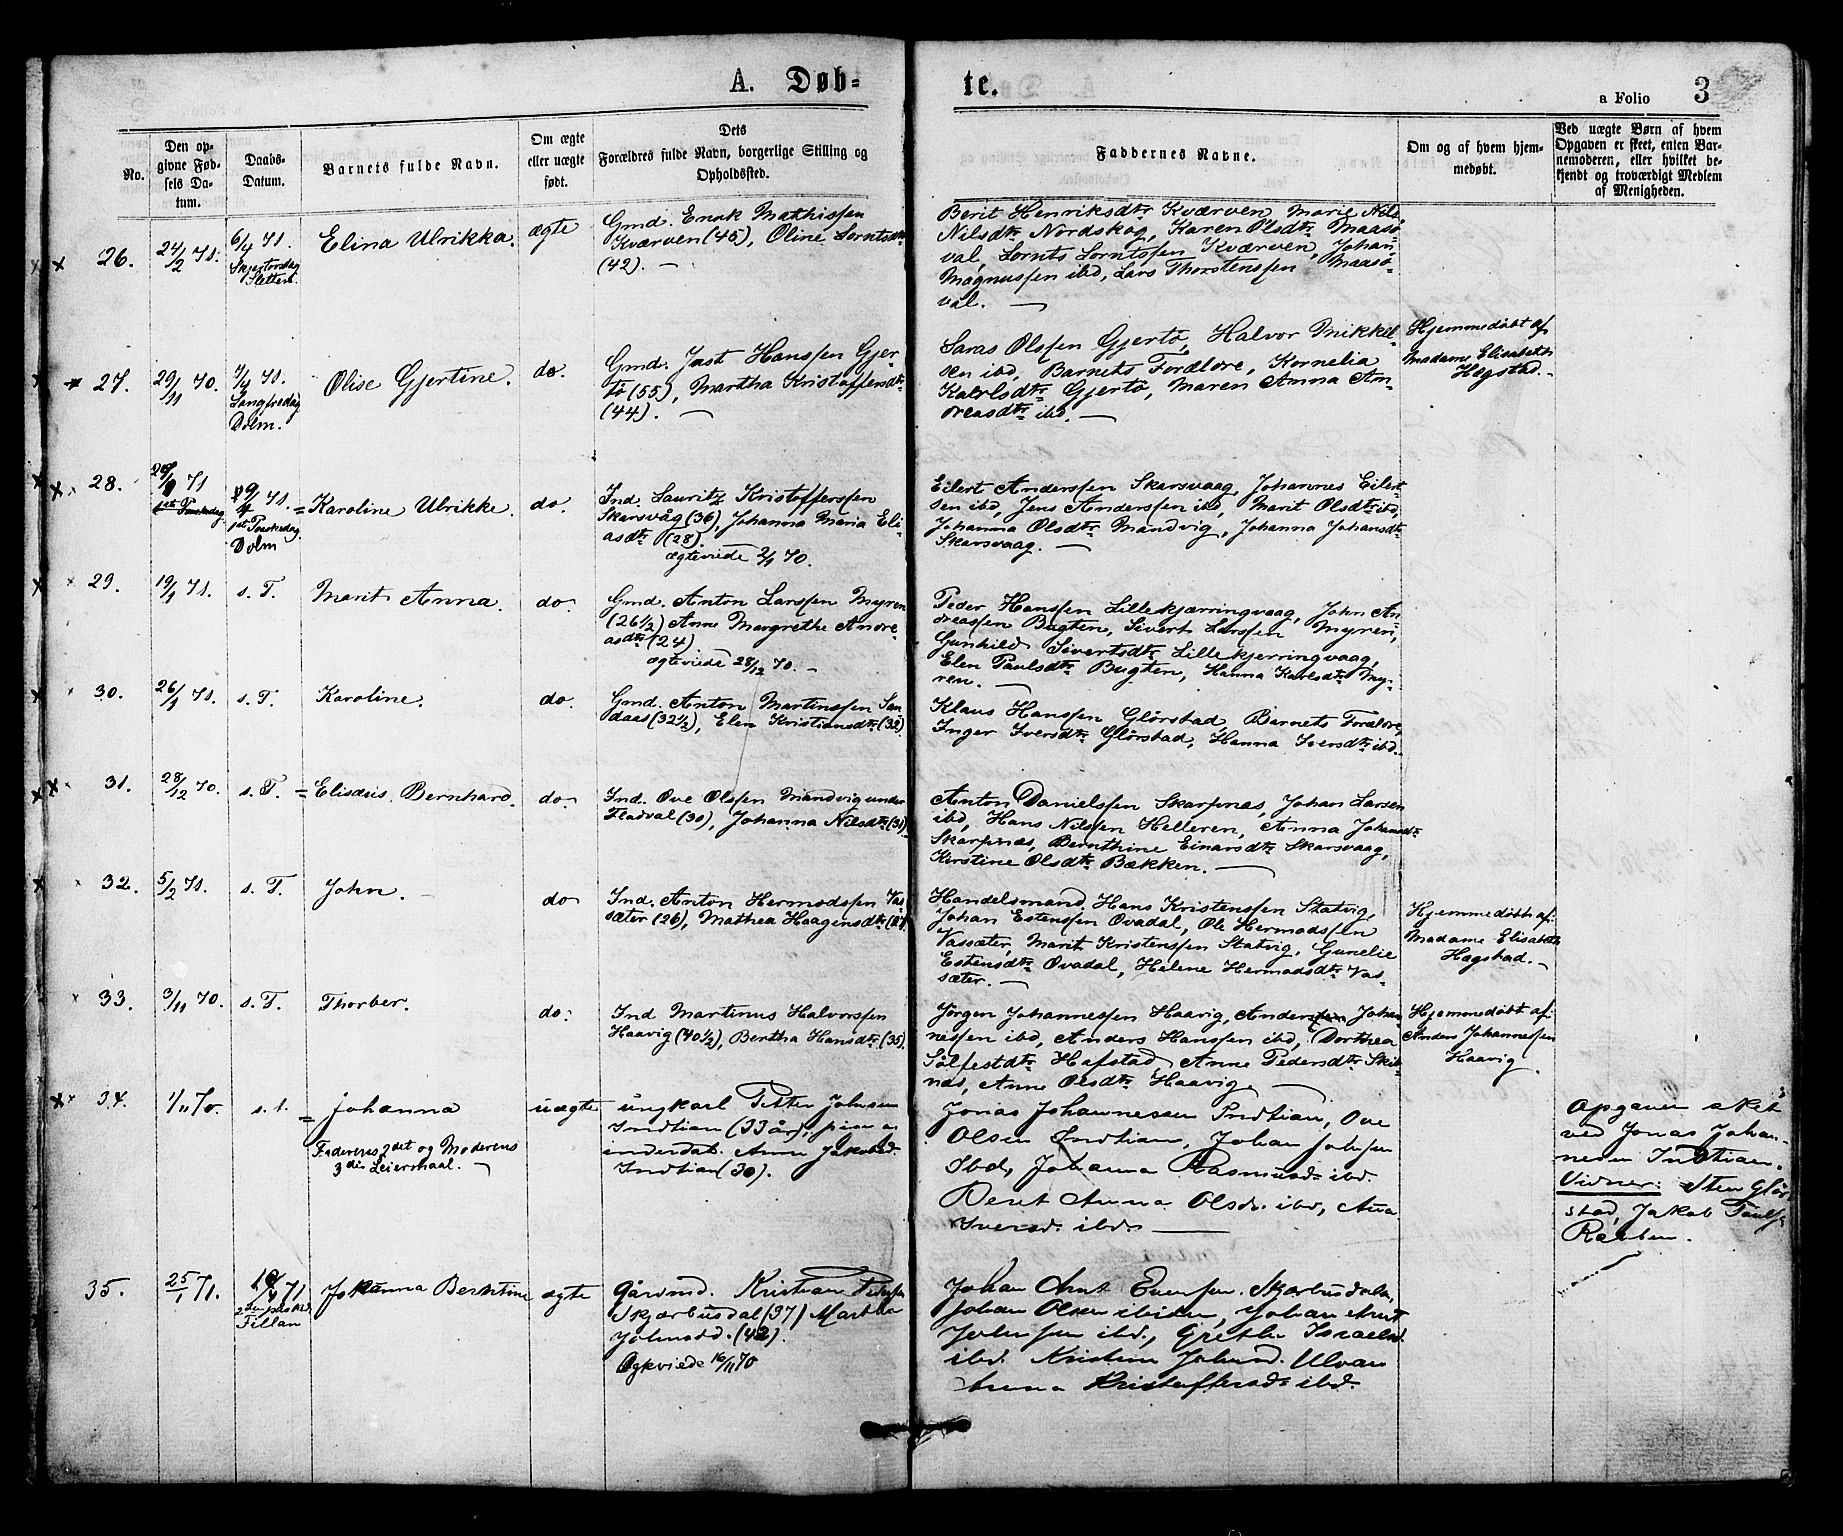 A. Døb=
te.
a Folio 3
No.
Den op=
givne Fød=
sels Da=
tum.
Daabs=
Datum.
Barnets fulde Navn.
Om ægte
eller uægte
født.
Dets
Forældres fulde Navn, borgerlige Stilling og
Opholdssted.
Faddernes Navne.
Om og af hvem hjem=
medøbt.
Ved uægte Børn af hvem
Opgaven er skeet, enten Bar=
nemoderen, eller hvilket be=
kjendt og troværdigt Medlem
af Menigheden.
26.
24/2 71.
6/4 71.
Skjertorsdag
Sletten.
Elina Ulrikka.
ægte
Gmd. Enok Mathissen
Kværven (45), Oline Lorntsdtr
(42). —
Berit Henriksdtr Kværven, Marie Nils
Nilsdtr Nordskog, Karen Olsdtr Maasø=
val, Lornts Lorntssen Kværven, Johan
Magnussen ibd, Lars Thorstenssen Maasø=
val. —
27.
29/11 70.
7/4 71.
Langfredag
Dolm.
Olise Gjertine.
do.
Gmd. Jast Hanssen Gjer=
tø (55), Martha Kristoffersdtr
(44). —
Saras Olssen Gjertø, Halvor Mikkel=
sen ibd, Barnets Forældre, Kornelia
Karlsdtr Gjertø, Maren Anna An=
dreasdtr ibd. —
Hjemmedøbt af
Madame Elisabeth
Hagstad. —
28.
71
1ste Paaskedag
9/4 71.
1ste Paaskedag.
Dolm
Karoline Ulrikke.
do.
Ind. Lauritz Kristofferssen
Skarsvåg (36), Johanna Maria Eli=
asdtr (28).
ægteviede 2/1 70.
Eilert Anderssen Skarsvaag, Johannes Eilert=
sen ibd, Jens Anderssen ibd, Marit Olsdtr ibd,
Johanna Olsdtr Mandvig, Johanna Johansdtr
Skarsvaag. —
29.
19/1 71.
s. T.
Marit Anna.
do.
Gmd. Anton Larssen Myren
(26 1/2) Anne Margrethe Andre=
asdtr (24)
ægteviede 28/12 70. —
Peder Hanssen Lillekjærringvaag, John An=
dreassen Bugten, Sivert Larssen Myren,
Gunhild Sivertsdtr Lillekjerringvaag,
Elen Paulsdtr Bugten, Hanna Karlsdtr My=
ren. —
30.
26/1 71.
s. T.
Karoline.
do.
Gmd. Anton Martinssen San=
daas (32 1/2), Elen Kristiansdtr (32)
Klaus Hanssen Glørstad, Barnets Forældre,
Inger Iversdtr Glørstad, Hanna Iversdtr ibd.
31.
28/12 70.
s. T.
Elisæus Bernhard.
do.
Ind. Ove Olssen Mandvig under
Fladval (30), Johanna Nilsdtr (30).
Anton Danielssen Skarpnæs, Johan Larsen
ibd, Hans Nilssen Helleren, Anna Johansdtr
Skarpnæs, Bernthine Einarsdtr Skarsvaag,
Kirstine Olsdtr Bækken. —
32.
5/2 71.
s. T.
John. —
do
Ind. Anton Hermodssen Vas=
sæter (26), Mathea Haagensdtr
Handelsmand Hans Kristenssen Statvig,
Johan Estenssen Ovadal, Ole Hermodssen
Vassæter, Marit Kristenssen Statvig, Gunelie
Estensdtr Ovadal, Helene Hermodsdtr Vas=
sæter. —
Hjemmedøbt af
Madame Elisabeth
Hagstad. —
33.
3/11 70.
s. T.
Thorber.
do.
Ind Martinus Halvorssen
Haavig (40 1/2), Bertha Hansdtr (35).
Jørgen Johannessen Haavig, Anders Johan=
nessen ibd, Anders Hanssen ibd, Dorthea
Sølfestdtr Hafstad, Anne Pedersdtr Skib=
næs, Anne Olsdtr Haavig. —
Hjemmedøbt af
Anders Johannessen
Haavig.
34.
1/11 70.
s. t.
Johanna
Faderens 2det og Moderens
3die Leiermaal. —
uægte
ungkarl Petter Johnsen
Indtian (33 år), pige
Anne Jakobsd.
Indtian (30).
Jonas Johannessen Indtian, Ove
Olsen Indtian, Johan Johnsen
Ibd, Johanna Rasmusd. ibd.
Beret Anna Olsd. ibd, Ana
Iversd. ibd. —
Opgaven sket
ved Jonas Johan=
nesen Indtian.
Vidner: Sten Glør=
stad, Jakob Paulsen
Rabben.
35.
25/1 71.
10/4 71
2den paaskd.
Fillan
Johanna Berntine
ægte
Gårmd. Kristian Peders
Skjærbusdal (37) Martha
Johnsd. (42).
Ægteviede 16/11 70
Johan Arnt Evensen Skærbusdalen,
Johan Olsen ibiden, Johan Arnt
Johnsen ibd, Grethe Israelsd.
ibd. Kristine Johnsd. Ulvan
Anna Kristoffersd. ibd.